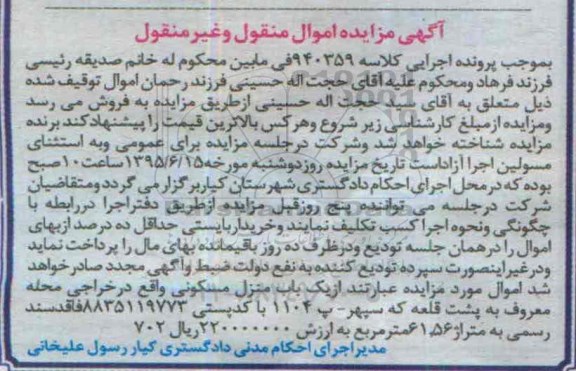 آگهی مزایده اموال منقول وغیرمنقول
بموجب پرونده اجرایی کلاسه ۹۴۰۳۵۹فی مابین محکوم له خانم صدیقه رئیسی
فرزند فرهاد ومحکوم علیه آقای حجت اله حسینی فرزند رحمان اموال توقیف شده
ذیل متعلق به آقای حجت اله حسینی ازطریق مزایده به فروش می رسد
ومزایده ازمبلغ کارشناسی زیر شروع وهرکس بالاترین قیمت را پیشنهادکند برنده
مزایده شناخته خواهد شد وشرکت درجلسه مزایده برای عمومی وبه استثنای
مسولین اجرا آزاداست تاریخ مزایده روزدوشنبه مورخه ۱۳۹۵/۶/۱۵ساعت۱۰صبح
بوده که درمحل اجرای احکام دادگستری شهرستان کیاربرگزار می گردد ومتقاضیان
شرکت درجلسه می توانند پنج روزقبل مزایده ازطریق دفتراجرا دررابطه با
چگونگی ونحوه اجرا کسب تکلیف نمایند وخریداربایستی حداقل ده درصد ازبهای
اموال را درهمان جلسه تودیع ودرظرف ده روز باقیمانده بهای مال را پرداخت نماید
ودرغیراینصورت سپرده تودیع کننده به نفع دولت ضبط وآگهی مجدد صادرخواهد
شد اموال مورد مزایده عبارتند ازیک باب منزل مسکونی واقع درخراجی محله
معروف به پشت قلعه که سپهر- پ ۱۱۰۴ با کدپستی ۸۸۳۵۱۱۹۷۷۳فاقدسند
رسمی به متراژ۶۱٫۵۶مترمربع به ارزش ۲۲۰۰۰۰۰۰۰ریال ۷۰۲
مدیراجرای احکام مدنی دادگستری کیار رسول علیخانی